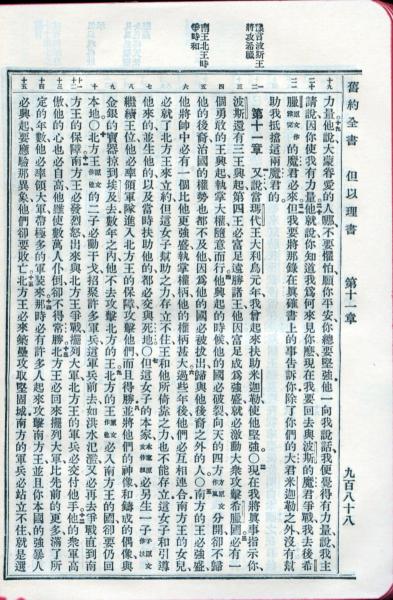 舊約全書 但以理書 第十一章 九百八十八
豫言波斯王將攻希臘
南王北王時爭時和
力量他說大蒙眷愛的人哪不要懼怕願你平安你總要堅強他一向我說話我便覺得有力量說我主
請說因你使我有力量他就說你知道我爲何來見你麼現在我要回去與波斯的魔君爭戰我去後希
臘原文作雅完的魔君必來但我要將那錄在眞確書上的事告訴你除了你們的大君米迦勒之外沒有幫
助我抵擋這兩魔君的
第十一章 又說當瑪代王大利烏元年我曾起來扶助米迦勒使他堅強現在我將眞事指示你
波斯還有三王興起第四王必富足遠勝諸王他因富足成爲強盛就必激動大衆攻擊希臘國必有一
個勇敢的王興起執掌大權隨意而行他興起的時候他的國必破裂向天的四方方原文作風分開卻不歸
他的後裔治國的權勢也都不及他因爲他的國必被拔出歸與他後裔之外的人○南方的王必強盛
他將帥中必有一個比他更強盛執掌權柄他的權柄甚大過些年後他們必互相連合南方王的女兒
必就了北方王來立約但這女子幫助之力存立不住王和他所倚靠之力也不能存立這女子和引導
他來的並生他的以及當時扶助他的都必交與死地○但這女子的本家必另生一子
繼續王位他必率領軍隊進入北方王的保障攻擊他們而且得勝並將他們的神像和鑄成的偶像與
金銀的寶器掠到埃及去數年之內他不去攻擊北方的王北方的王原文作他必入南方王的國卻要仍回
本地○北方王原文作他的二子必動干戈招聚許多軍兵這軍兵前去如洪水氾濫又必再去爭戰直到南
方王的保障南方王必發烈怒出來與北方王爭戰擺列大軍北方王的軍兵必交付他手他的衆軍高
傲他的心也必自高他雖使數萬人仆倒卻不得常勝北方王必回來擺列大軍比先前的更多滿了所
定的年數他必率領大軍帶極多的軍裝來那時必有許多人起來攻擊南方王並且你本國的強暴人
必興起要應驗那異象他們卻要敗亡北方王必來築壘攻取堅固城南方的軍兵必站立不住就是選